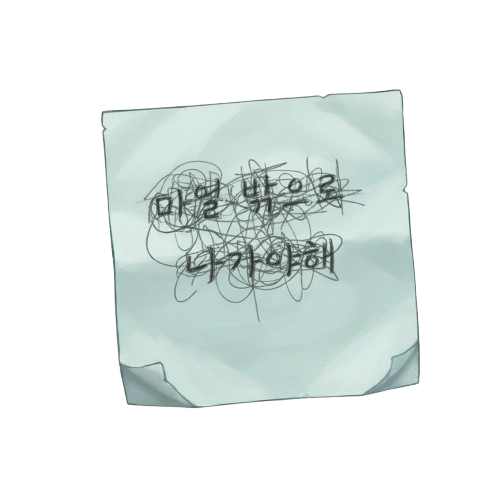 마열 밖으로
나가야해